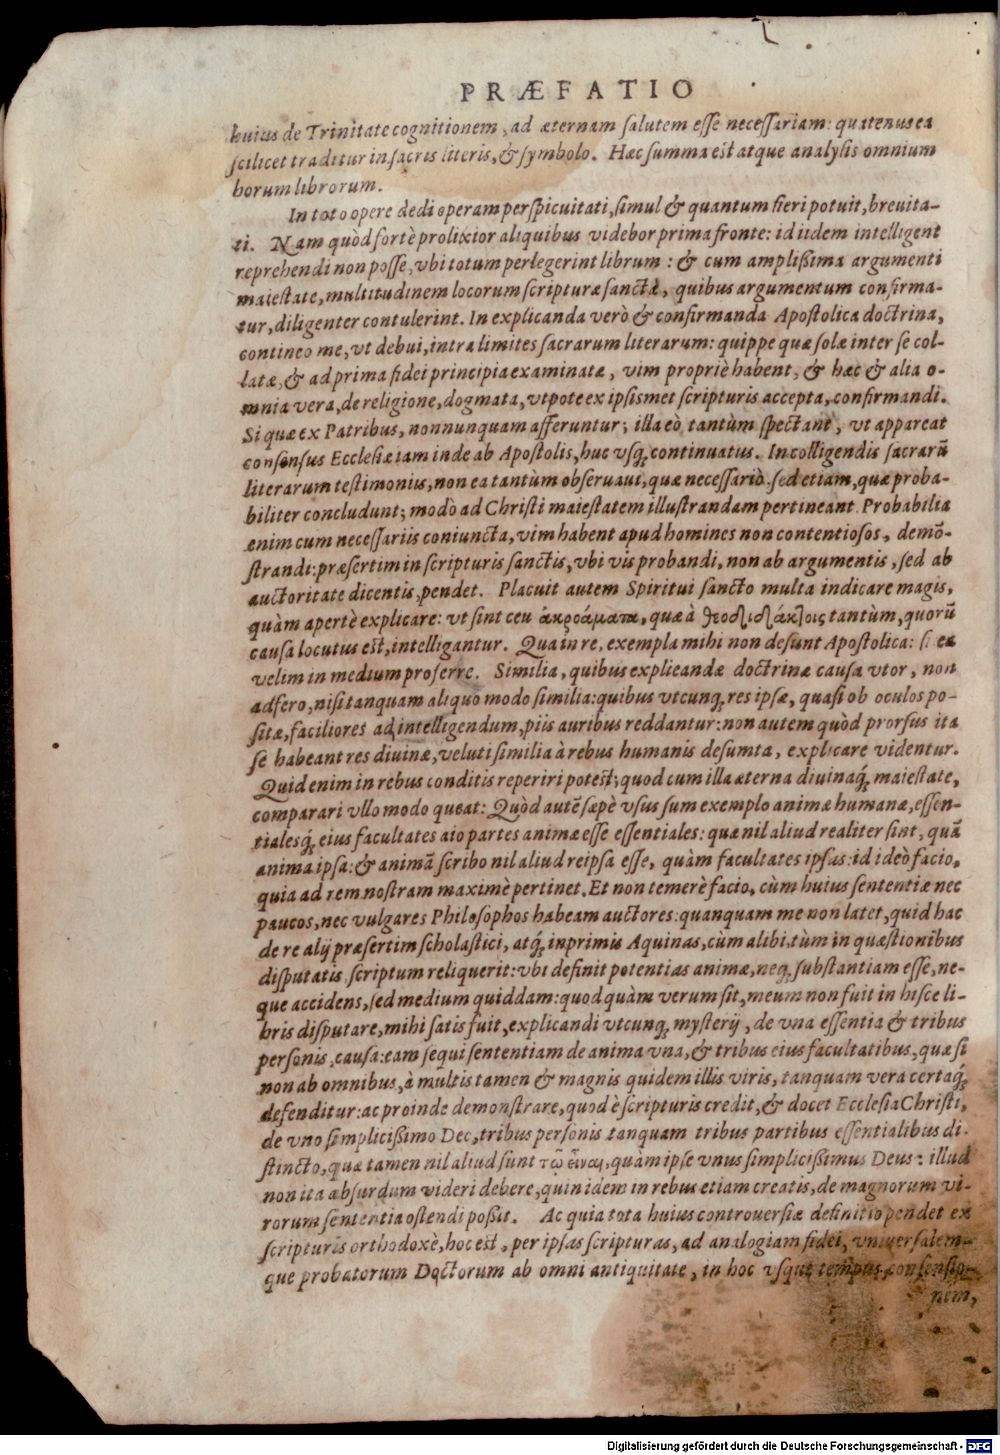 PRÆFATIO
huius de Trinitate cognitionem, ad æternam salutem esse necessariam: quatenus ea
scilicet traditur in sacris literis, & symbolo. Hæc summa est atque analysis omnium
horum librorum.
In toto opere dedi operam perspicuitati, simul & quantum fieri potuit, breuita-
ti. Nam quòd fortè prolixior aliquibus videbor prima fronte: id iidem intelligent
reprehendi non posse, vbi totum perlegerint librum: & cum amplißima argumenti
maiestate, multitudinem locorum scripturæ sanctæ, quibus argumentum confirma-
tur, diligenter contulerint. In explicanda verò & confirmanda Apostolica doctrina,
contineo me, vt debui, intra limites sacrarum literarum: quippe quæ solæ inter se col-
latæ, & ad prima fidei principia examinatæ, vim propriè habent, & hæc & alia o-
mnia vera, de religione, dogmata, vtpote ex ipsismet scripturis accepta, confirmandi.
Si quæ ex Patribus, nonnunquam afferuntur; illa eò tantùm spectant, vt appareat
consensus Ecclesiæ iam inde ab Apostolis, huc vsq; continuatus. In colligendis sacrarũ
literarum testimoniis, non ea tantùm obseruaui, quæ necessariò sed etiam, quæ proba-
biliter concludunt; modò ad Christi maiestatem illustrandam pertineant. Probabilia
enim cum necessariis coniuncta, vim habent apud homines non contentiosos, demõ-
strandi: præsertim in scripturis sanctis, vbi vis probandi, non ab argumentis, sed ab
auctoritate dicentis, pendet. Placuit autem Spiritui sancto multa indicare magis,
quàm apertè explicare: vt sint ceu ἀκροάματα, quæ à θεοδιδάκτοις tantùm, quorũ
causa locutus est, intelligantur. Qua in re, exempla mihi non desunt Apostolica: si ea
velim in medium proferre. Similia, quibus explicandæ doctrinæ causa vtor, non
adfero, nisi tanquam aliquo modo similia: quibus vtcunq; res ipsæ, quasi ob oculos po-
sitæ, faciliores ad intelligendum, piis auribus reddantur: non autem quòd prorsus ita
se habeant res diuinæ, veluti similia à rebus humanis desumta, explicare videntur.
Quid enim in rebus conditis reperiri potest; quod cum illa æterna diuinaq; maiestate,
comparari vllo modo queat: Quòd autẽ sæpè vsus sum exemplo animæ humanæ, essen-
tialesq; eius facultates aio partes animæ esse essentiales: quæ nil aliud realiter sint, quã
anima ipsa: & animã scribo nil aliud reipsa esse, quàm facultates ipsas: id ideò facio,
quia ad rem nostram maximè pertinet. Et non temerè facio, cùm huius sententiæ nec
paucos, nec vulgares Philosophos habeam auctores: quanquam me non latet, quid hac
de re alij præsertim scholastici, atq; inprimis Aquinas, cùm alibi, tùm in quæstionibus
disputatis, scriptum reliquerit: vbi definit potentias animæ, neq; substantiam esse, ne-
que accidens, sed medium quiddam: quod quàm verum sit, meum non fuit in hisce li-
bris disputare, mihi satis fuit, explicandi vtcunq; mysterij, de vna essentia & tribus
personis, causa: eam sequi sententiam de anima vna, & tribus eius facultatibus, quæ si
non ab omnibus, à multis tamen & magnis quidem illis viris, tanquam vera certaq;
defenditur: ac proinde demonstrare, quod è scripturis credit, & docet Ecclesia Christi,
de vno simplicißimo Deo, tribus personis tanquam tribus partibus essentialibus di-
stincto, quæ tamen nil aliud sunt τῷ εἶναι, quàm ipse vnus simplicißimus Deus: illud
non ita absurdum videri debere, quin idem in rebus etiam creatis, de magnorum vi-
rorum sententia ostendi poßit. Ac quia tota huius controuersiæ definitio pendet ex
scripturis orthodoxè, hoc est, per ipsas scripturas, ad analogiam fidei, vniuersalem-
que probatorum Doctorum ab omni antiquitate, in hoc vsque tempus, consensio-
nem,
Digitalisierung gefördert durch die Deutsche Forschungsgemeinschaft - DFG